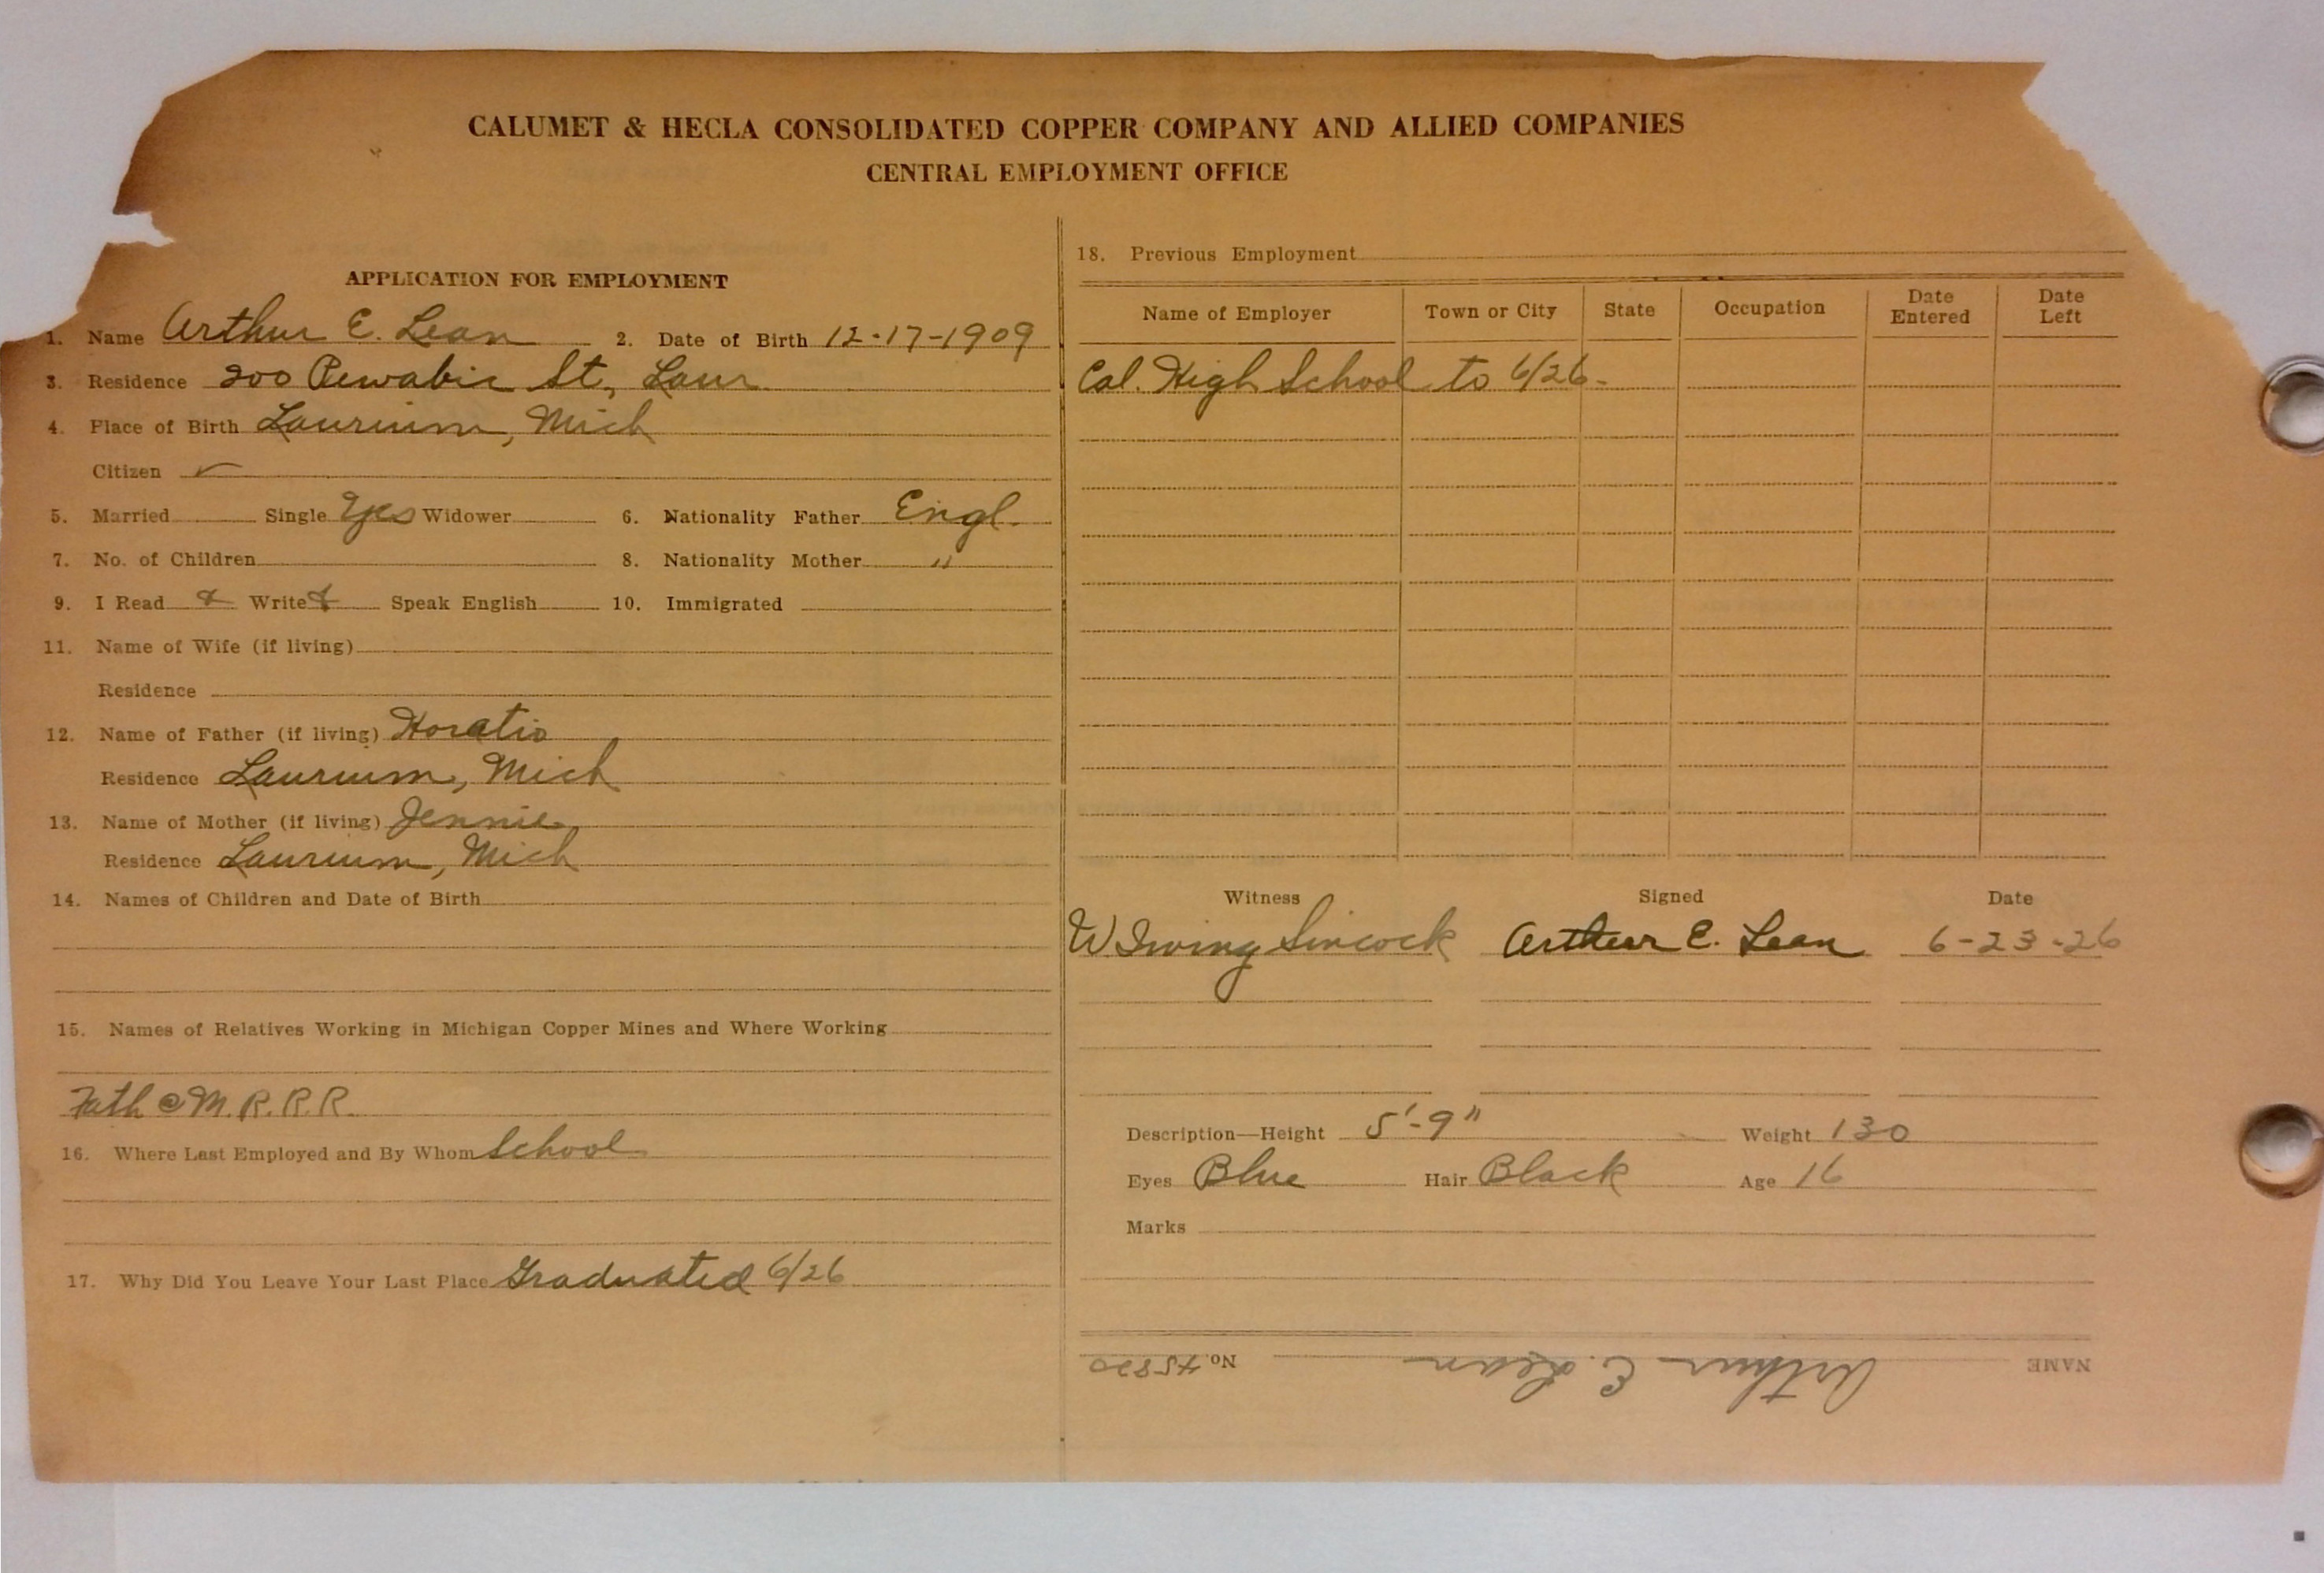 CALUMET & HECLA CONSOLIDATED COPPER COMPANY AND ALLIED COMPANIES
CENTRAL EMPLOYMENT OFFICE
APPLICATION FOR EMPLOYMENT
1. Name Arthur E. Lean 2. Date of Birth 12-17-1909
3. Residence 200 Pewabic St, Laur
4. Place of Birth Laurium, Mich
Citizen ✓
5. Married Single Yes Widower 6. Nationality Father Engl.
7. No. of Children 8. Nationality Mother "
9. I Read & Write & Speak English 10. Immigrated
11. Name of Wife (if living)
Residence
12. Name of Father (if living) Horatio
Residence Laurium, Mich
13. Name of Mother (if living) Jennie
Residence Laurium, Mich
14. Names of Children and Date of Birth
15. Names of Relatives Working in Michigan Copper Mines and Where Working
Fath @ M. R. R. R.
16. Where Last Employed and By Whom School
17. Why Did You Leave Your Last Place Graduated 6/26
18. Previous Employment
Name of Employer Town or City State Occupation Date Entered Date Left
Cal. High School to 6/26-
Witness Signed Date
W. Irving Sincock Arthur E. Lean 6-23-26
Description—Height 5'-9" Weight 130
Eyes Blue Hair Black Age 16
Marks
NAME Arthur E. Lean No. 45820